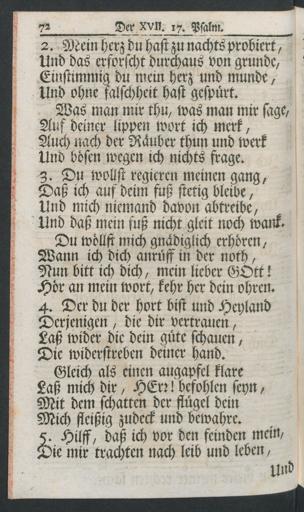 72 Der XVII. 17. Psalm.
2. Mein herz du hast zu nachts probiert,
Und das erforscht durchaus von grunde,
Einstimmig du mein herz und munde,
Und ohne falschheit hast gespürt.
Was man mir thu, was man mir sage,
Auf deiner lippen wort ich merk,
Auch nach der Räuber thun und werk
Und bösen wegen ich nichts frage.
3. Du wollst regieren meinen gang,
Daß ich auf deim fuß stetig bleibe,
Und mich niemand davon abtreibe,
Und daß mein fuß nicht gleit noch wank.
Du wöllst mich gnädiglich erhören,
Wann ich dich anrüff in der noth,
Nun bitt ich dich, mein lieber GOtt!
Hör an mein wort, kehr her dein ohren.
4. Der du der hort bist und Heyland
Derjenigen, die dir vertrauen,
Laß wider die dein güte schauen,
Die widerstreben deiner hand.
Gleich als einen augapfel klare
Laß mich dir, HErr! befohlen seyn,
Mit dem schatten der flügel dein
Mich fleißig zudeck und bewahre.
5. Hilff, daß ich vor den feinden mein,
Die mir trachten nach leib und leben,
Und